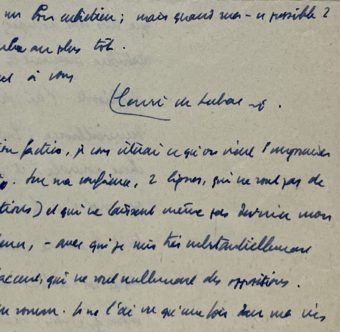 un bon entretien ; mais quand sera-ce possible ?
au plus tôt.
et à vous
Henri de Lubac sj.
tion factice, je vous citerai ce qu'on vient d'imprimer
sur ma conférence, 2 lignes, qui ne sont pas de
tions) et qui ne laissent même pas deviner mon
— avec qui je suis très substantiellement
accord, qui ne sont nullement des oppositions.
Je ne l'ai vu qu'une fois dans ma vie